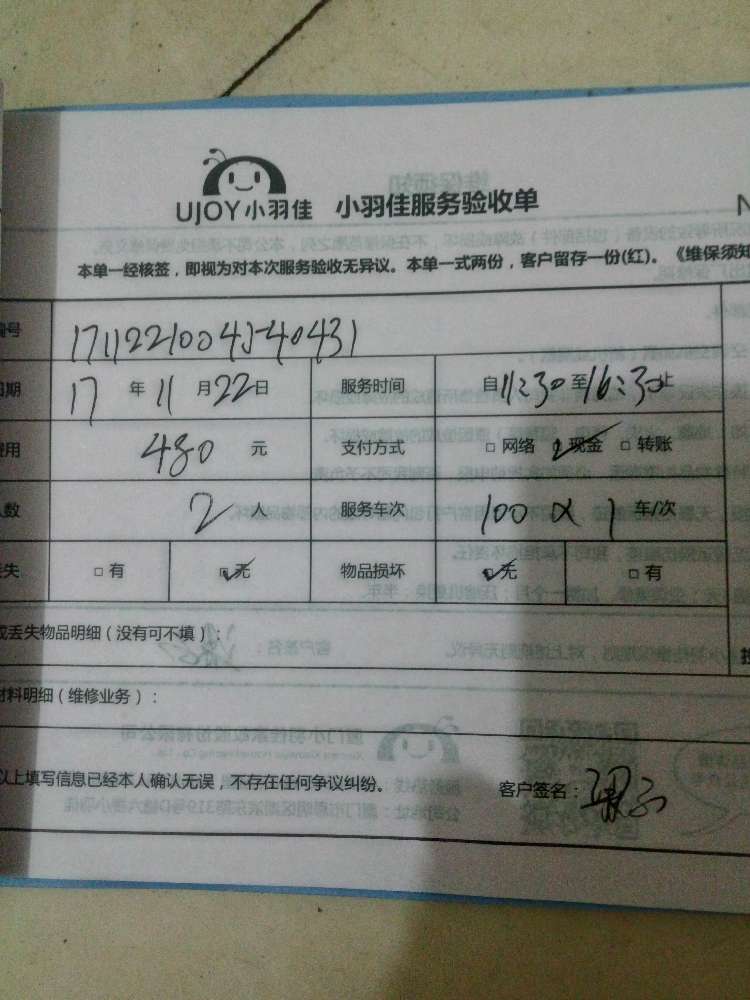 UJOY小羽佳 小羽佳服务验收单
本单一经核签,即视为对本次服务验收无异议。本单一式两份,客户留存一份(红)。《维保须知
号 1711221004540431
期 17 年 11 月 22 日 服务时间 自 11:30 至 16:30 止
费用 480 元 支付方式 □ 网络 ☑ 现金 □ 转账
人数 2 人 服务车次 1 车/次
失 □ 有 ☑ 无 物品损坏 ☑ 无 □ 有
或丢失物品明细(没有可不填):
材料明细(维修业务):
以上填写信息已经本人确认无误,不存在任何争议纠纷。 客户签名: